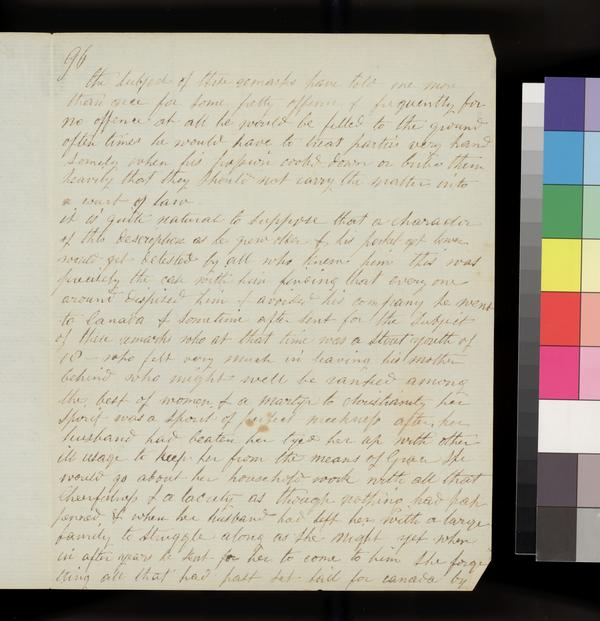 96
the subject of these remarks have told me more
than once for some petty offence & frequently for
no offence at all he would be felled to the ground
often times he would have to treat parties very hand
somely when his passion cooled down or bribe them
heavily that they should not carry the matter into
a court of law
it is quite natural to suppose that a character
of this description as he grew older & his pocket got lower
would get detested by all who knew him this was
precisely the case with him finding that every one
around dispised him & avoided his company he went
to Canada & sometime after sent for the subject
of these remarks who at that time was a stout youth of
18 - who felt very much in leaving his mother
behind who might well be ranked among
the best of women & a martyr to christianity her
spirit was a spirit of perfect meekness after her
husband had beaten her tyed her up with other
ill usage to keep her from the means of Grace she
would go about her household work with all that
Cheerfulness & alacrity as though nothing had hap
pened & when her husband had left her with a large
family to struggle along as she might yet when
in after years he sent for her to come to him she forge
tting all that had past set sail for canada by